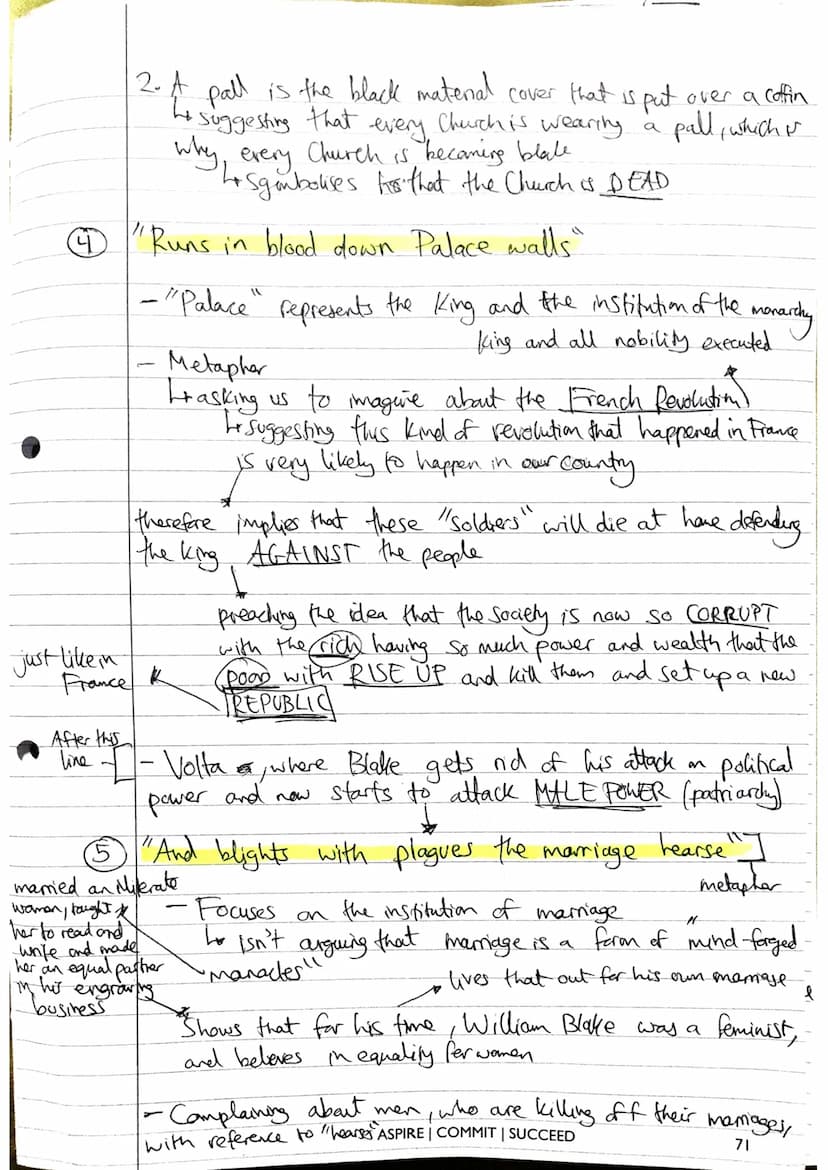 2. A pall is the black material cover that is put over a coffin
↳ suggesting that every Church is wearing a pall, which is
why, every Church is becoming blak
↳ Sgmbolises that the Church is DEAD
④ "Runs in blood down Palace walls"
- "Palace" represents the King and the institution of the monarchy
King and all nobility executed
- Metaphor
↳ asking us to imagine about the French Revolution
↳ suggesting this kind of revolution that happened in France
is very likely to happen in our country
therefore implies that these "soldiers" will die at home defending
the king, AGAINST the people
preaching the idea that the society is now so CORRUPT
with the rich having so much power and wealth that the
poor with RISE UP and kill them and set up a new
REPUBLIC
just like in
France
After this
line
- Volta, where Blake gets rid of his attack on political
power and now starts to attack MALE POWER (patriarchy)
⑤ "And blights with plagues the marriage hearse"
metaphor
married an illiterate
woman, taught
her to read and
write and made
her an equal partner
in his engraving
business
- Focuses on the institution of marriage
↳ Isn't arguing that marriage is a form of "mind-forged
manacles"
lives that out for his own marriage
Shows that for his time, William Blake was a feminist,
and believes in equality for women
- Complaining about men, who are killing off their marriages,
with reference to "hearse"
ASPIRE | COMMIT | SUCCEED
71